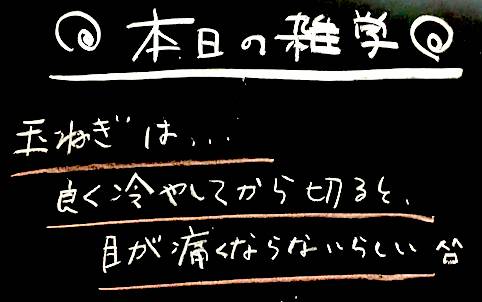 本日の雑学
玉ねぎは...
良く冷やしてから切ると、
目が痛くならないらしい